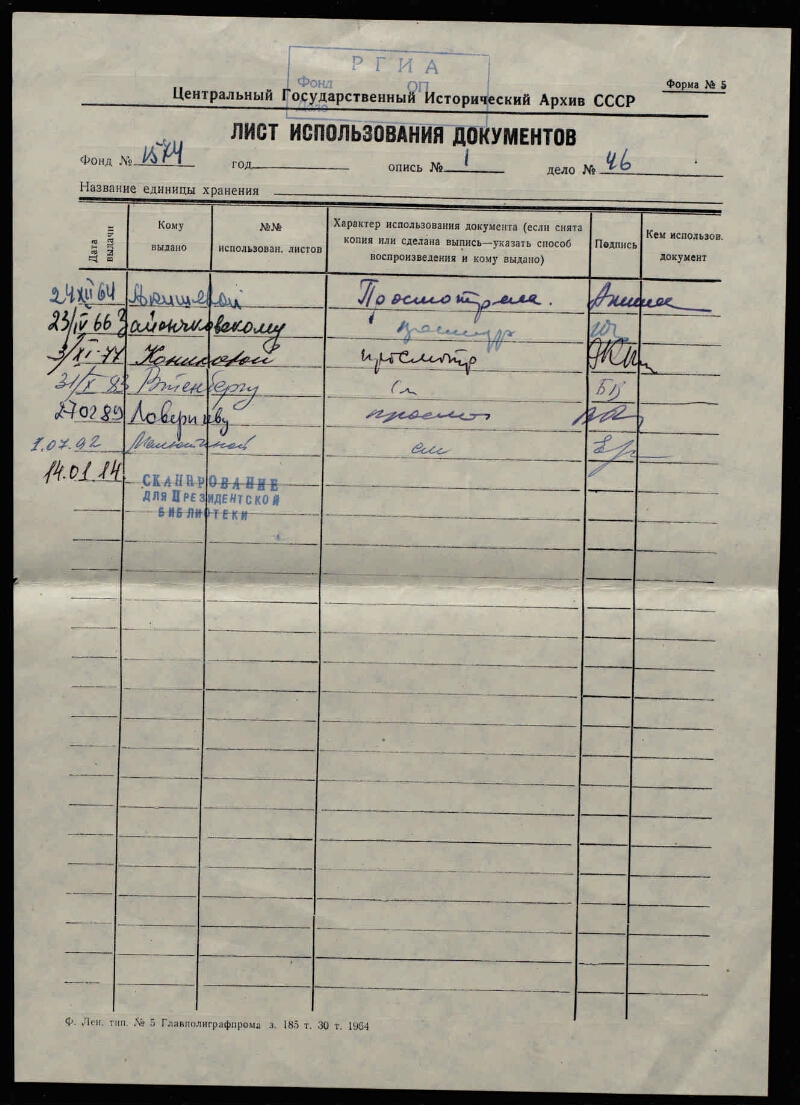 РГИА
Фонд ОП
Форма № 5
Центральный Государственный Исторический Архив СССР
ЛИСТ ИСПОЛЬЗОВАНИЯ ДОКУМЕНТОВ
Фонд № 1574 год опись № 1 дело № 46
Название единицы хранения
Дата выдачи
Кому выдано
№№ использован. листов
Характер использования документа (если снята копия или сделана выпись—указать способ воспроизведения и кому выдано)
Подпись
Кем использов. документ
24 XII 64 Просмотрела.
23/IV 66 Зайончковскому просмотр
3/XI-77 Кониковой просмотр
31/X 83 См ББ
270289 просмот
1.07.92 см
14.01.14. СКАНИРОВАНИЕ
ДЛЯ ПРЕЗИДЕНТСКОЙ
БИБЛИОТЕКИ
Ф. Лен. тип. № 5 Главполиграфпрома з. 185 т. 30 т. 1964